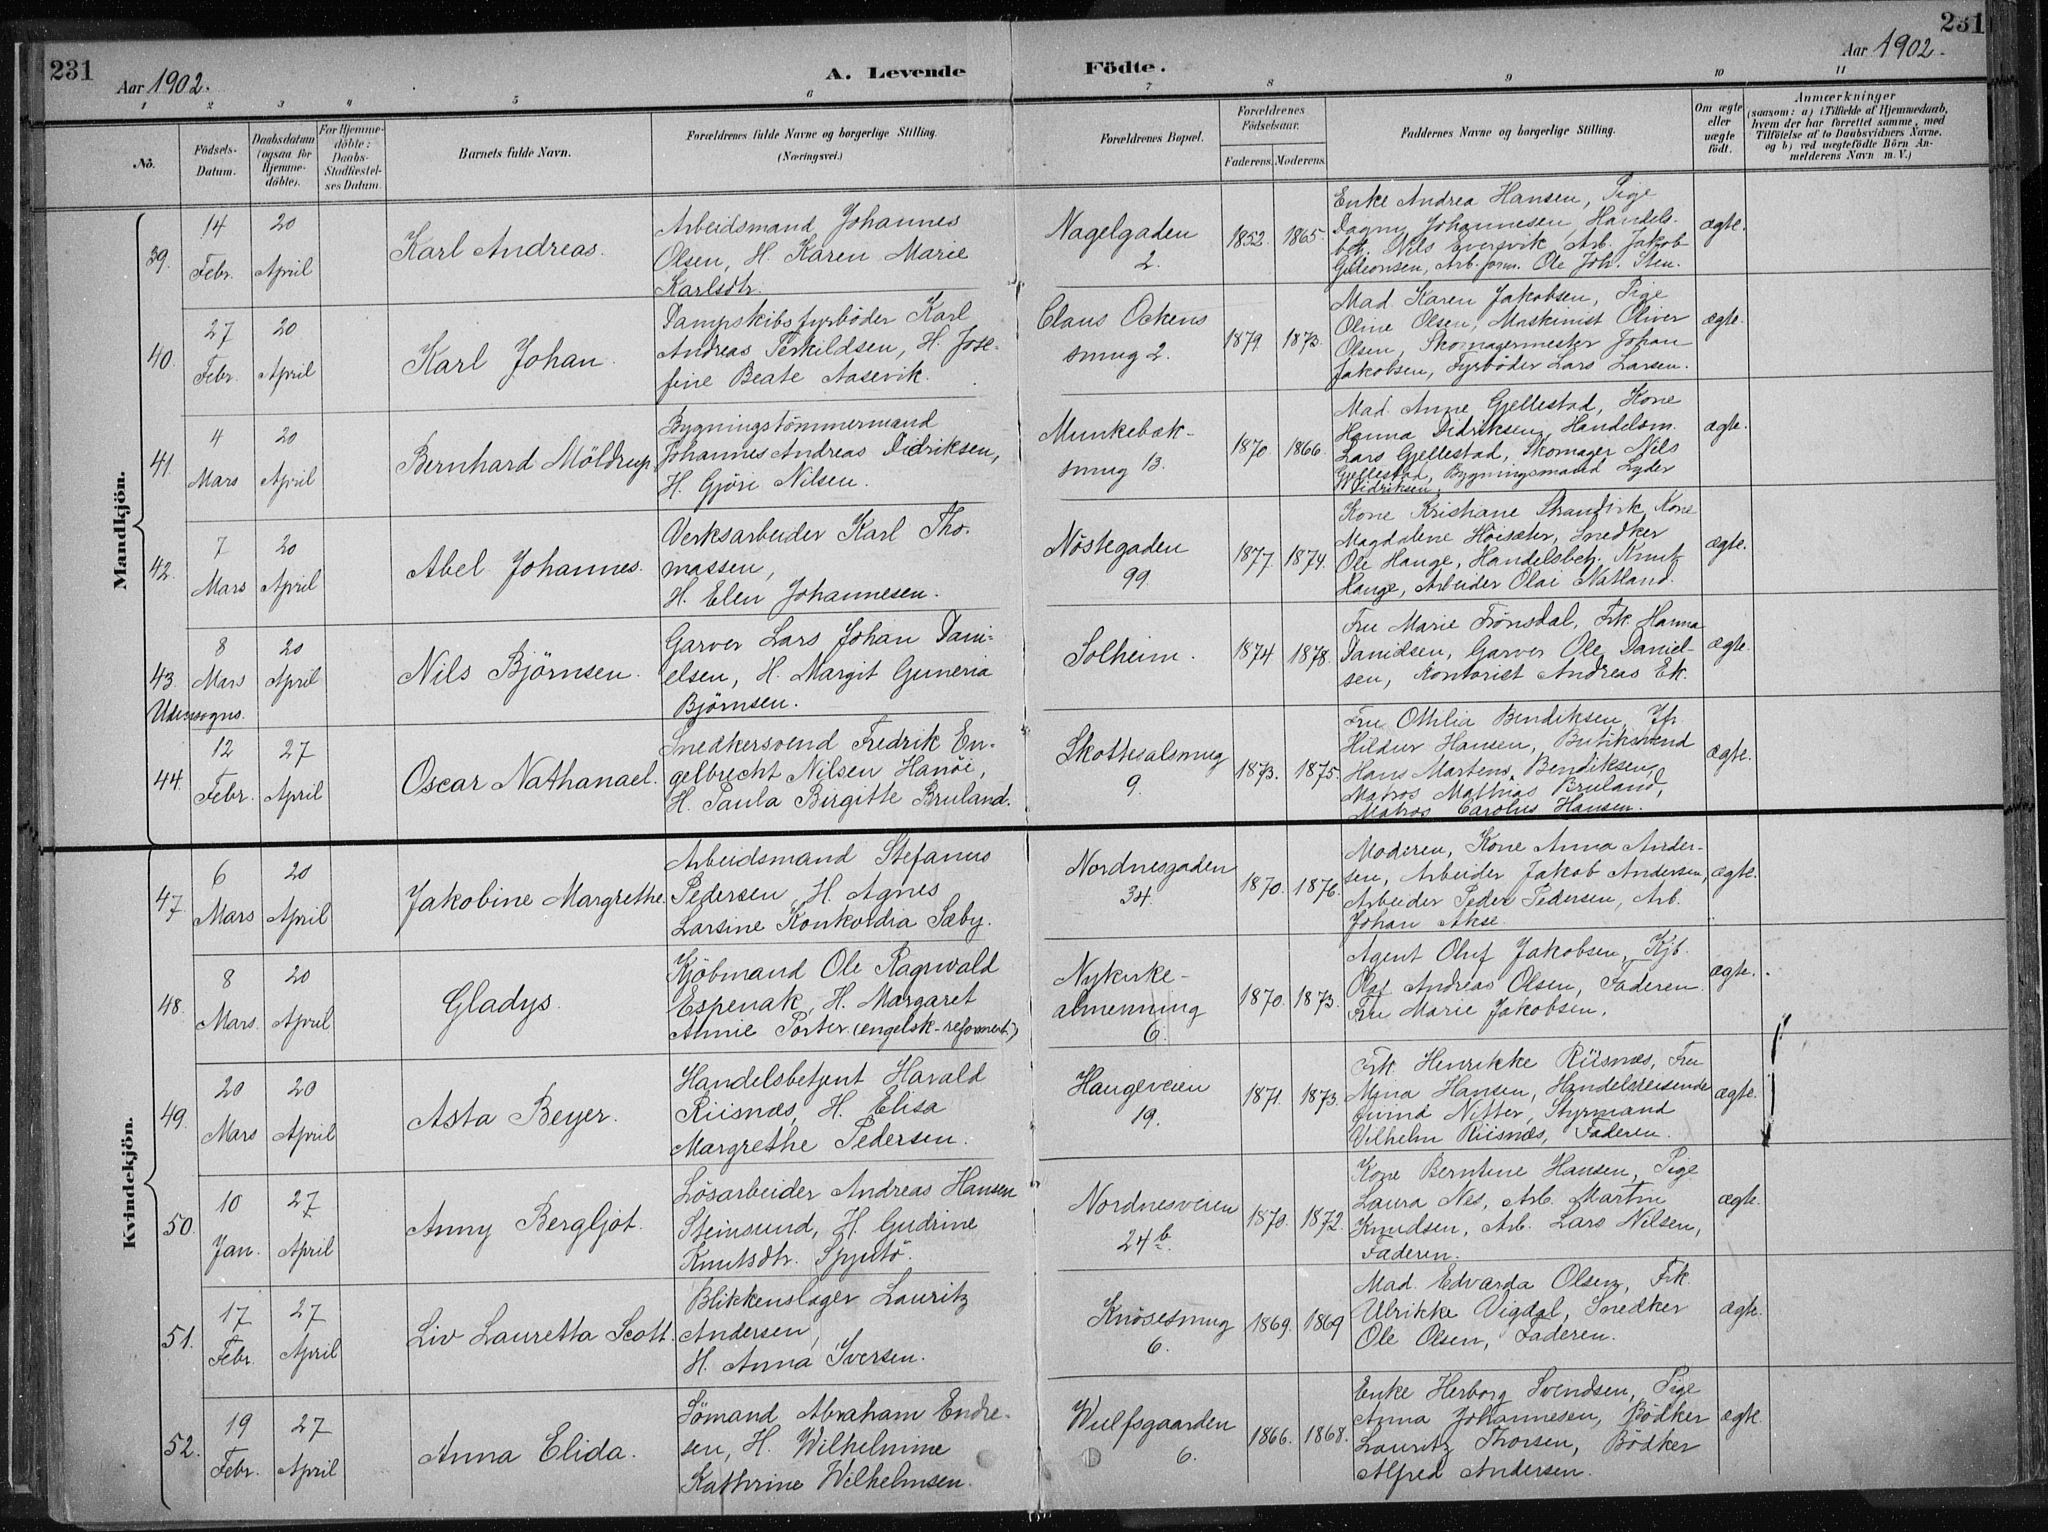 231
Aar 1902.
A. Levende
Födte.
231
Aar 1902.
1 2 3 4 5 6 7 8 9 10 11
No.
Födsels-
Datum.
Daabsdatum
(ogsaa for
Hjemme-
döbte).
For Hjemme-
döbte:
Daabs-
Stadfæstel-
ses Datum.
Barnets fulde Navn.
Forældrenes fulde Navne og borgerlige Stilling.
(Næringsvei.)
Forældrenes Bopæl.
Forældrenes
Födselsaar.
Faderens. Moderens.
Faddernes Navne og borgerlige Stilling.
Om ægte
eller
uægte
födt.
Anmærkninger
(saasom: a) i Tilfælde af Hjemmedaab,
hvem der har forrettet samme, med
Tilföielse af to Daabsvidners Navne.
og b) ved uægtefödte Börn An-
melderens Navn m. V.)
Mandkjön.
39.
14
Febr.
20
April
Karl Andreas.
Arbeidsmand Johannes
Olsen, H. Karen Marie
Karlsdtr.
Nagelgaden
2.
1852. 1865.
Enke Andrea Hansen, Pige
Dagny Johannesen, Handels-
betj. Nils Eversvik, Arb. Jakob
Gideonsen, Arb.form. Ole Joh. Sten.
ægte.
40.
27
Febr.
20
April
Karl Johan.
Dampskibsfyrbøder Karl
Andreas Terkildsen, H. Jose-
fine Beate Aasevik.
Claus Ockens
smug 2.
1879. 1873.
Mad Karen Jakobsen, Pige
Oline Olsen, Maskinist Oliver
Olsen, Skomagermester Johan
Jakobsen, Fyrbøder Lars Larsen.
ægte.
41.
4
Mars
20
April
Bernhard Möldrup.
Bygningstömmermand
Johannes Andreas Didriksen,
H. Gjöri Nilsen.
Munkebæk-
smug 13.
1870 1866.
Mad. Anne Gjellestad, Kone
Hanna Didriksen, Handelsm.
Lars Gjellestad, Skomager Nils
Gjellestad, Bygningsmand Lyder
Didriksen.
ægte.
42.
7
Mars
20
April
Abel Johannes.
Verksarbeider Karl Tho-
massen,
H. Elen Johannesen.
Nöstegaden
99.
1877. 1874.
Kone Kristiane Strandvik, Kone
Magdalene Höisæter, Snedker
Ole Hauge, Handelsbetj. Knut
Hauge, Arbeider Olai Natland.
ægte.
43.
Udensogns.
8
Mars
20
April
Nils Björnsen.
Garver Lars Johan Dani-
elsen, H. Margit Guneria
Björnsen.
Solheim.
1874 1878.
Fru Marie Frönsdal, Frk Hanna
Danielsen, Garver Ole Daniel-
sen, Kontorist Andreas Ek.
ægte.
44.
12
Febr.
27
April
Oscar Nathanael.
Snedkersvend Fredrik En-
gelbrecht Nilsen Hanöi,
H. Paula Birgitte Bruland.
Skottesalsmug
9.
1873. 1875.
Fru Ottilia Bendiksen, Jfr.
Hildur Hansen, Butiksvend
Hans Martens Bendiksen,
Matros Mathias Bruland,
Matros Carolus Hansen.
ægte.
Kvindekjön.
47.
6
Mars
20
April
Jakobine Margrethe.
Arbeidsmand Stefanus
Pedersen, H. Agnes
Larsine Konkordia Sæby.
Nordnesgaden
34.
1870. 1876.
Moderen, Kone Anna Ander-
sen, Arbeider Jakob Andersen,
Arbeider Peder Pedersen, Arb.
Johan Akse.
ægte.
48.
8
Mars.
20
April
Gladys.
Kjöbmand Ole Ragnvald
Espenak, H. Margaret
Annie Porter (engelsk-reformert.)
Nykirke-
almenning
6.
1870. 1873.
Agent Oluf Jakobsen, Kjb.
Olaf Andreas Olsen, Faderen
Fru Marie Jakobsen.
ægte.
49.
20
Mars
20
April
Asta Beyer.
Handelsbetjent Harald
Riisnæs, H. Elisa
Margrethe Pedersen.
Haugeveien
19.
1871. 1873.
Frk Henrikke Riisnæs, Fru
Mina Hansen, Handelsreisende
Eivind Nitter, Styrmand
Vilhelm Riisnæs, Faderen.
ægte.
50.
10
Jan.
27
April
Anny Bergljot.
Lösarbeider Andreas Hansen
Steinsund, H. Gudrine
Knutsdtr. Spjutö.
Nordnesveien
24b.
1870. 1872.
Kone Berntine Hansen, Pige
Laura Nes, Arb. Martin
Knudsen, Arb. Lars Nilsen,
Faderen.
ægte.
51.
17
Febr.
27
April
Liv Lauretta Scott.
Blikkenslager Lauritz
Andersen,
H. Anna Iversen.
Knösesmug
6.
1869. 1869
Mad. Edvarda Olsen, Frk.
Ulrikke Vigdal, Snedker
Ole Olsen, Faderen.
ægte.
52.
19
Febr.
27
April
Anna Elida.
Sömand Abraham Endre-
sen, H. Wilhelmine
Kathrine Wilhelmsen.
Wulfsgaarden
6.
1866. 1868.
Enke Herborg Svendsen, Pige
Anna Johannesen, Bödker
Lauritz Thorsen, Bödker
Alfred Andersen.
ægte.